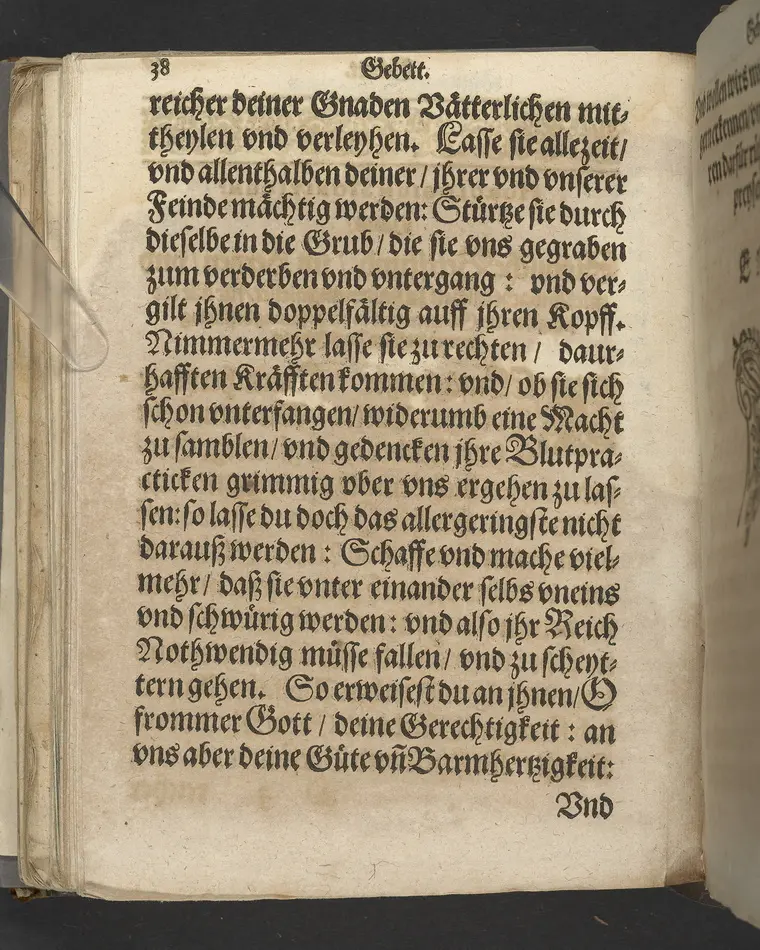 38 Gebett.
reicher deiner Gnaden Vätterlichen mit-
theylen vnd verleyhen. Lasse sie allezeit/
vnd allenthalben deiner / jhrer vnd vnserer
Feinde mächtig werden: Stürtze sie durch
dieselbe in die Grub / die sie vns gegraben
zum verderben vnd vntergang : vnd ver-
gilt jhnen doppelfältig auff jhren Kopff.
Nimmermehr lasse sie zu rechten / daur-
hafften Kräfften kommen: vnd/ ob sie sich
schon vnterfangen/ widerumb eine Macht
zu samblen/ vnd gedencken jhre Blutpra-
cticken grimmig vber vns ergehen zu las-
sen: so lasse du doch das allergeringste nicht
darauß werden : Schaffe vnd mache viel-
mehr/ daß sie vnter einander selbs vneins
vnd schwürig werden: vnd also jhr Reich
Nothwendig müsse fallen/ vnd zu scheyt-
tern gehen. So erweisest du an jhnen/ O
frommer Gott / deine Gerechtigkeit : an
vns aber deine Güte vñ Barmhertzigkeit:
Vnd